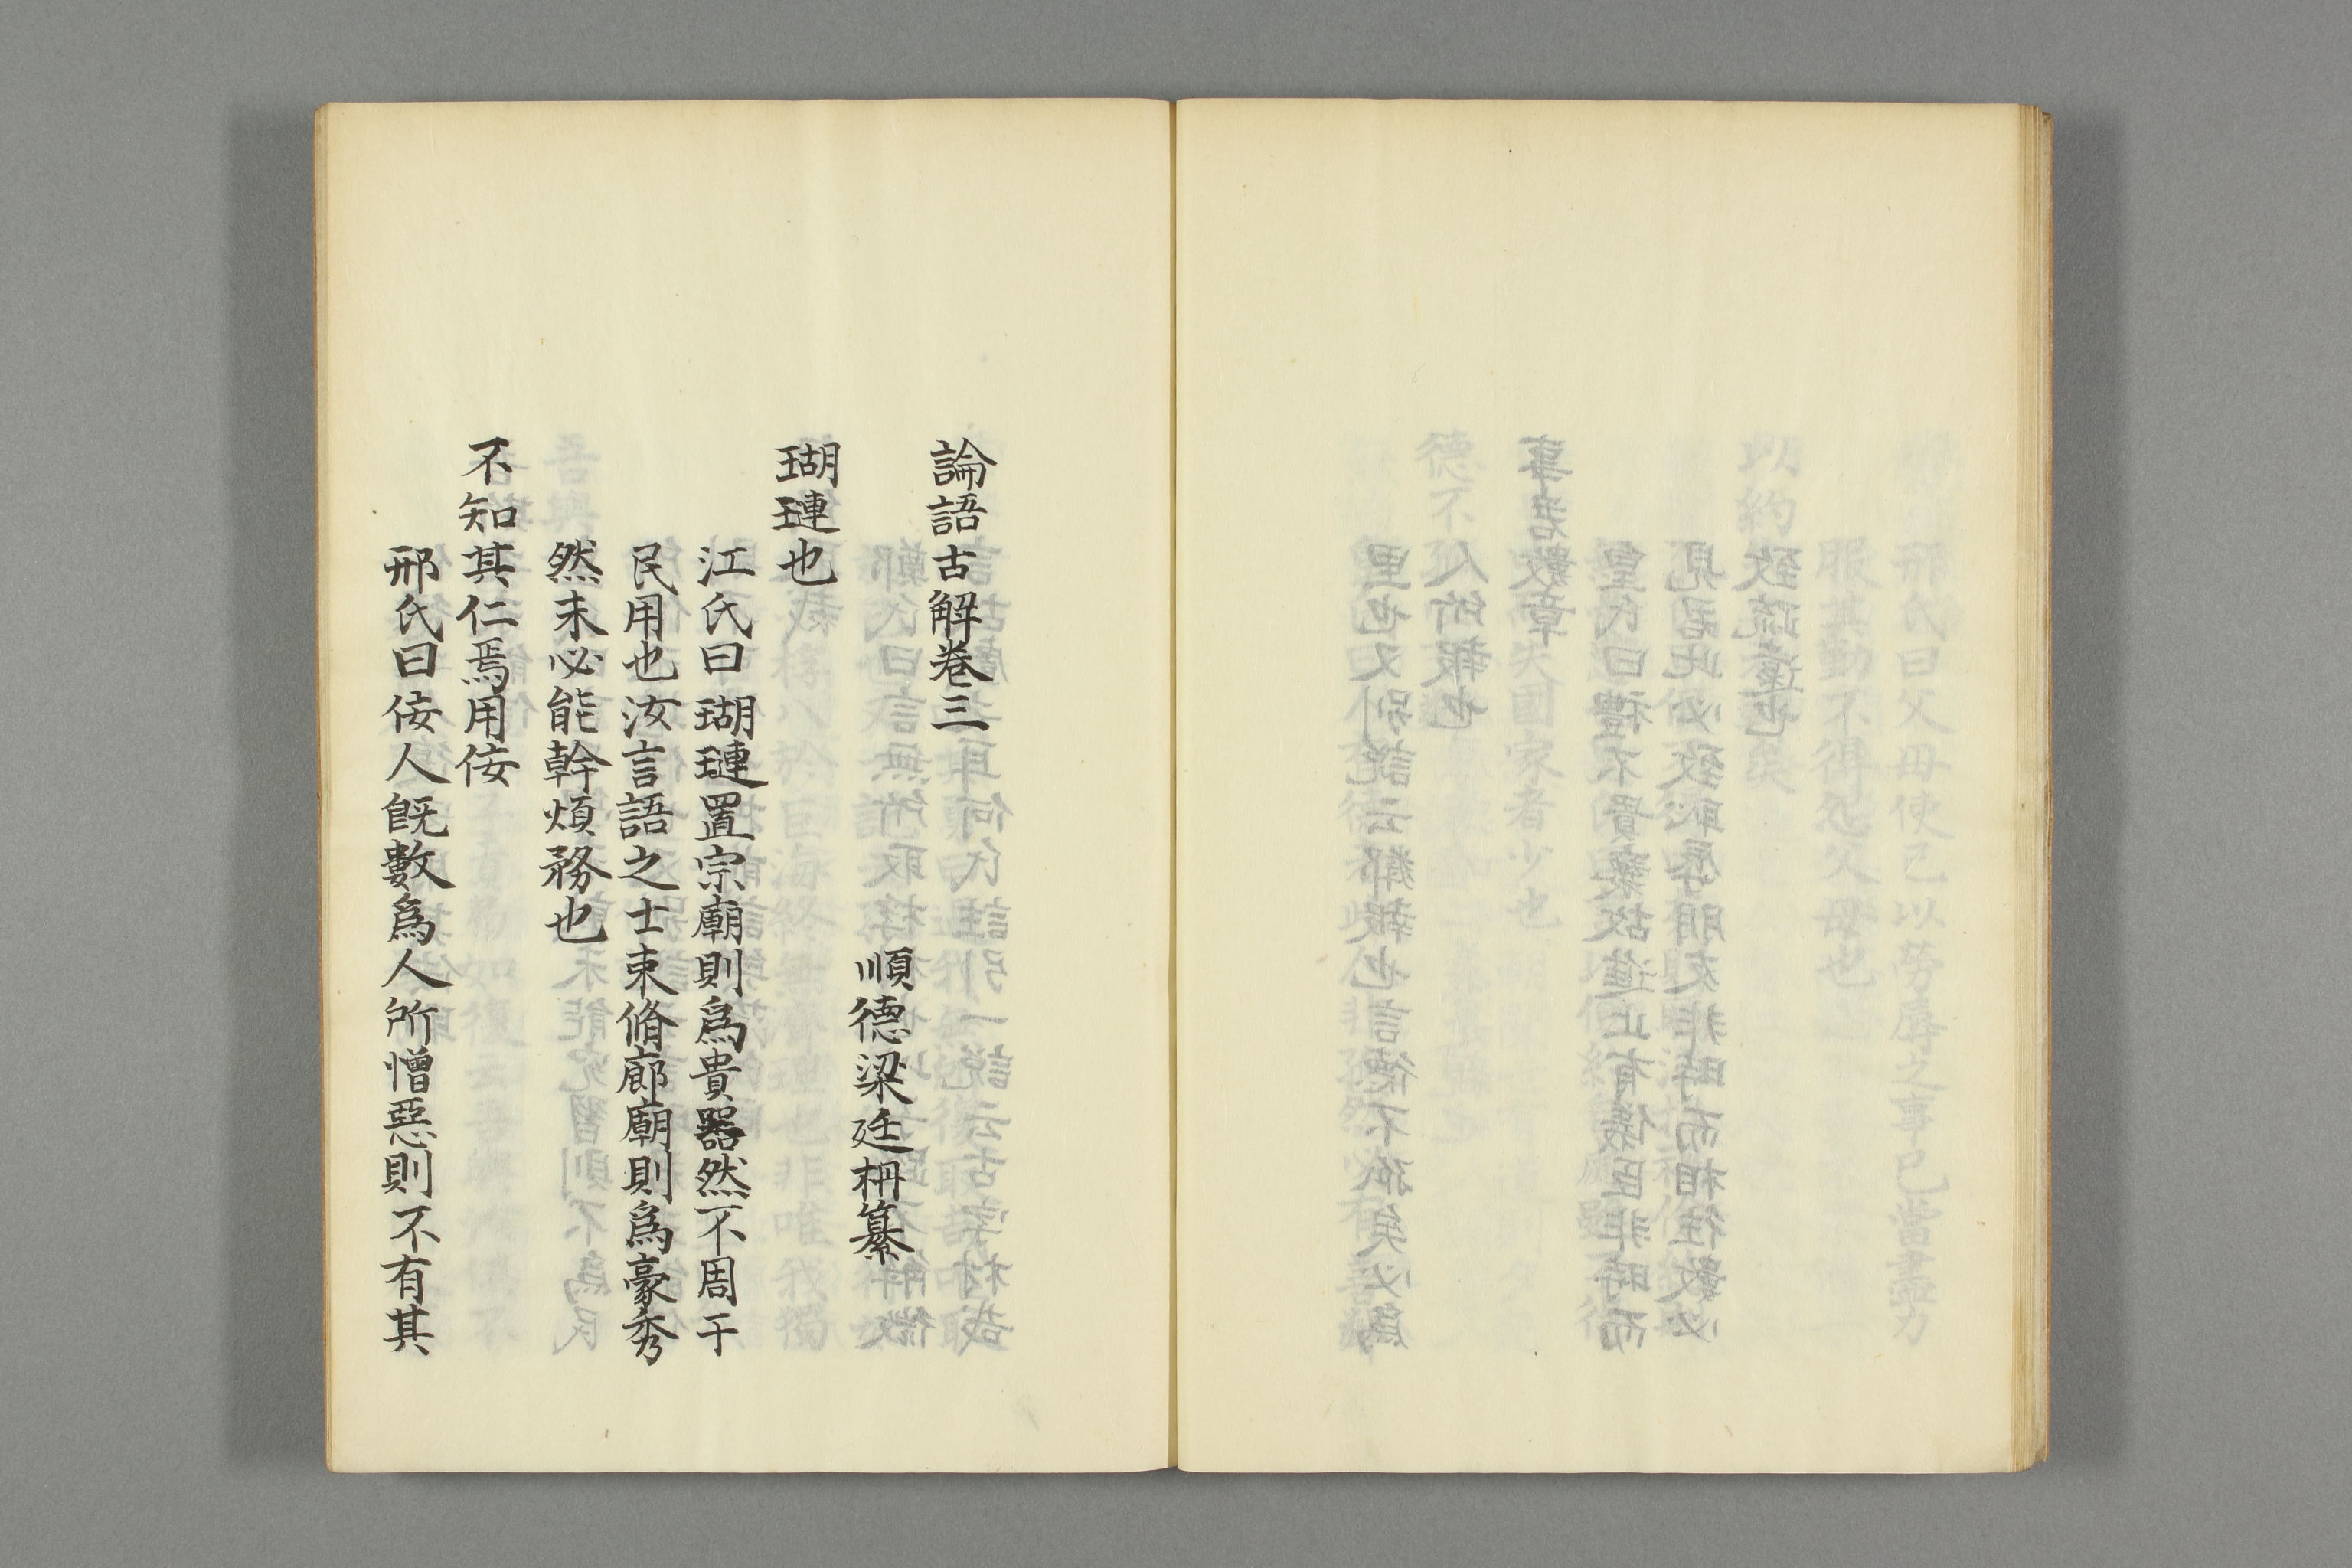 論語古解卷三
順德梁廷枏纂
瑚璉也
江氏曰瑚璉置宗廟則爲貴器然不周于
民用也汝言語之士束脩廊廟則爲豪秀
然未必能幹煩務也
不知其仁焉用佞
邢氏曰佞人旣數爲人所憎惡則不有其